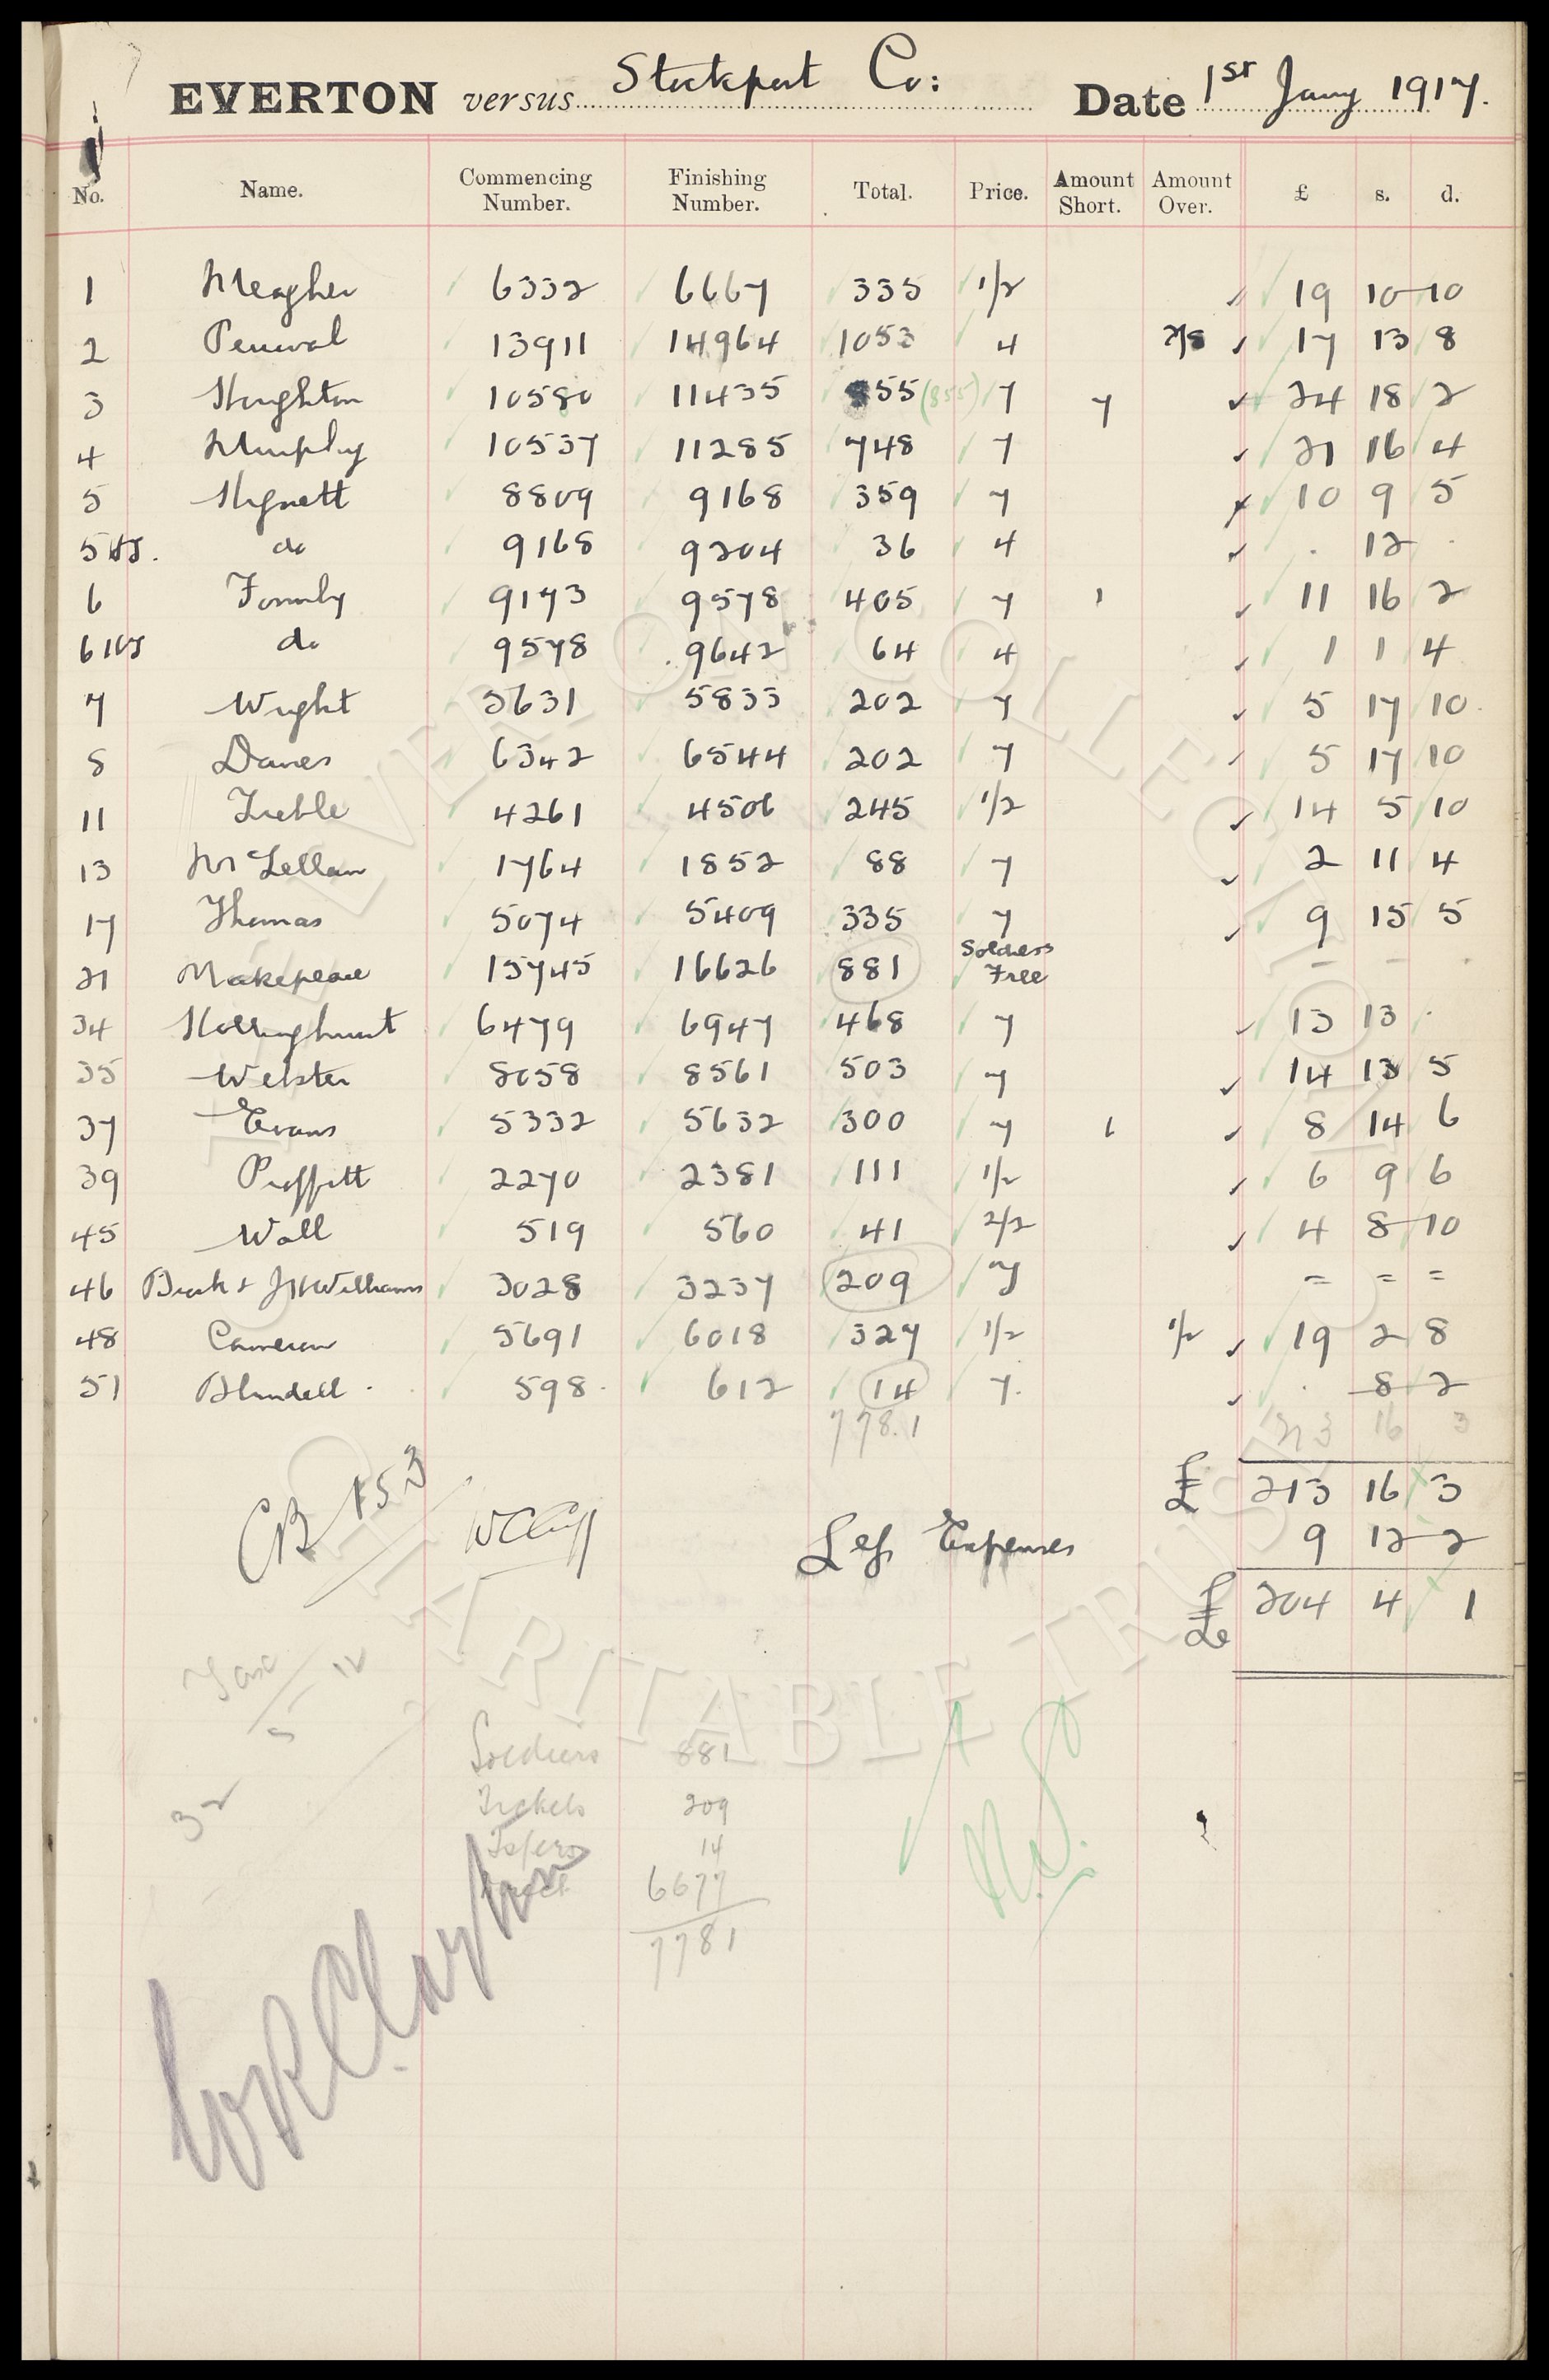 EVERTON versus Stockport Co: Date 1st Jany 1917.
No. Name. Commencing Number. Finishing Number. Total. Price. Amount Short. Amount Over. £ s. d.
1 Meagher 6332 6667 335 1/2 19 10 10
2 Percival 13911 14964 1053 4 2/8 17 13 8
3 Houghton 10580 11435 855 (855) 7 7 24 18 2
4 Murphy 10537 11285 748 7 21 16 4
5 Hignett 8809 9168 359 7 10 9 5
5 do 9168 9204 36 4 . 12 .
6 Formby 9173 9578 405 7 1 11 16 2
6 do 9578 9642 64 4 1 1 4
7 Wright 5631 5833 202 7 5 17 10
8 Davies 6342 6544 202 7 5 17 10
11 Treble 4261 4506 245 1/2 14 5 10
13 McLellan 1764 1852 88 7 2 11 4
17 Thomas 5074 5409 335 7 9 15 5
21 Makepeace 15745 16626 881 Soldiers Free - - .
34 Hollinghurst 6479 6947 468 7 13 13 .
35 Webster 8058 8561 503 7 14 13 5
37 Evans 5332 5632 300 7 1 8 14 6
39 Proffitt 2270 2381 111 1/2 6 9 6
45 Wall 519 560 41 2/2 4 8 10
46 & J H Williams 3028 3237 209 = = =
48 Cameron 5691 6018 327 1/2 1/2 19 2 8
51 Blundell . 598 . 612 14 7. . 8 2
778.1 213 16 3
£ 213 16 3
CB 153
WCCuff
Less Expenses 9 12 2
£ 204 4 1
Soldiers 881
Tickets 209
Tsfers 14
6677
7781
32
W R Clayton
EVERTON COLLECTION CHARITABLE TRUST